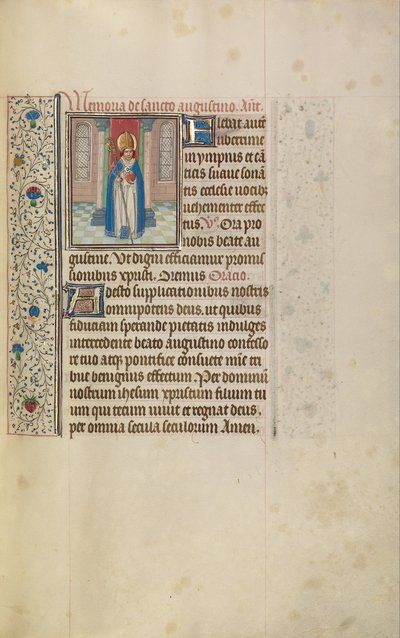 Memoria de sancto augustino. Ant.
Flebat aute
uberrime
in ympnis et cā
ticis suaue sonā
tis ecclesie uocib
uehementer effec
tus. Vs. Ora pro
nobis beate au
gustine. Ut digni efficiamur promis
sionibus xpristi. Oremus Oracio.
Adesto supplicationibus nostris
omnipotens deus. ut quibus
fiduciam sperande pietatis indulges
intercedente beato augustino confesso
re tuo atq pontifice consuete mīe tri
bue benignius effectum. Per dominū
nostrum ihesum xpristum filium tu
um qui tecum uiuit et regnat deus.
per omnia secula seculorum Amen.